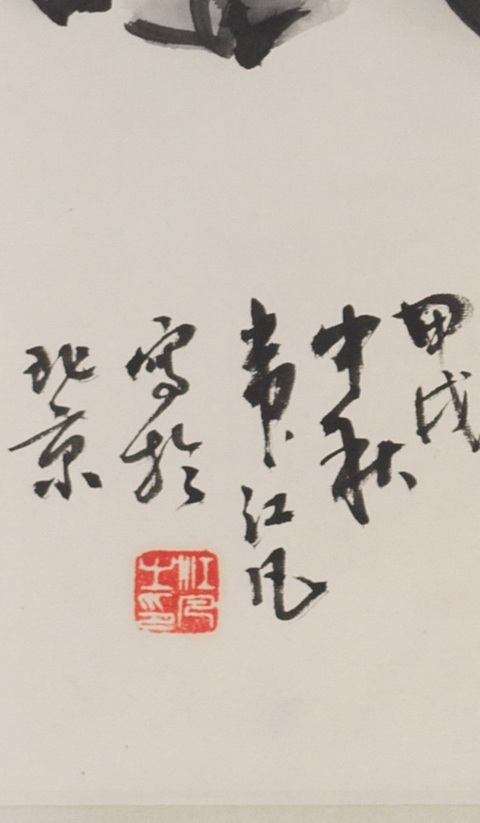 甲戌
中秋
韋江凡
寫於
北京
江凡
之印